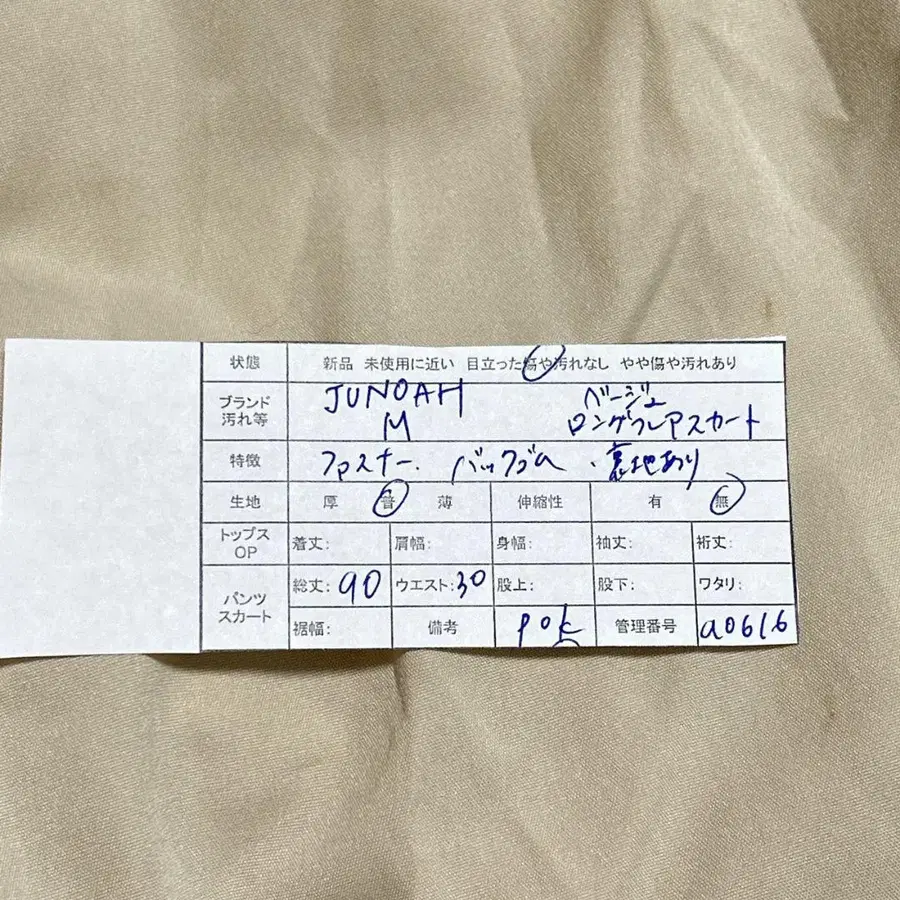 状態 新品 未使用に近い 目立った傷や汚れなし やや傷や汚れあり
ブランド 汚れ等 JUNOAH ベージュ
M ロングフレアスカート
特徴 ファスナー、バックゴム、裏地あり
生地 厚 普 薄 伸縮性 有 無
トップス OP 着丈: 肩幅: 身幅: 袖丈: 裄丈:
パンツ スカート 総丈: 90 ウエスト: 30 股上: 股下: ワタリ:
裾幅: 備考 管理番号 a0616